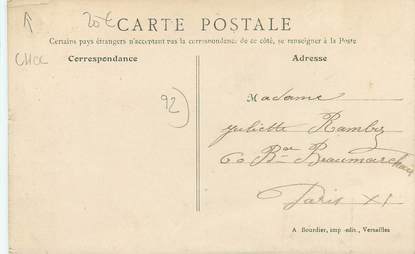 20€
CARTE POSTALE
Certains pays étrangers n'acceptant pas la correspondance de ce côté, se renseigner à la Poste
Correspondance
Adresse
92)
Madame
Juliette
60 Bd Beaumarchais
Paris XI
A Bourdier, imp -edit., Versailles